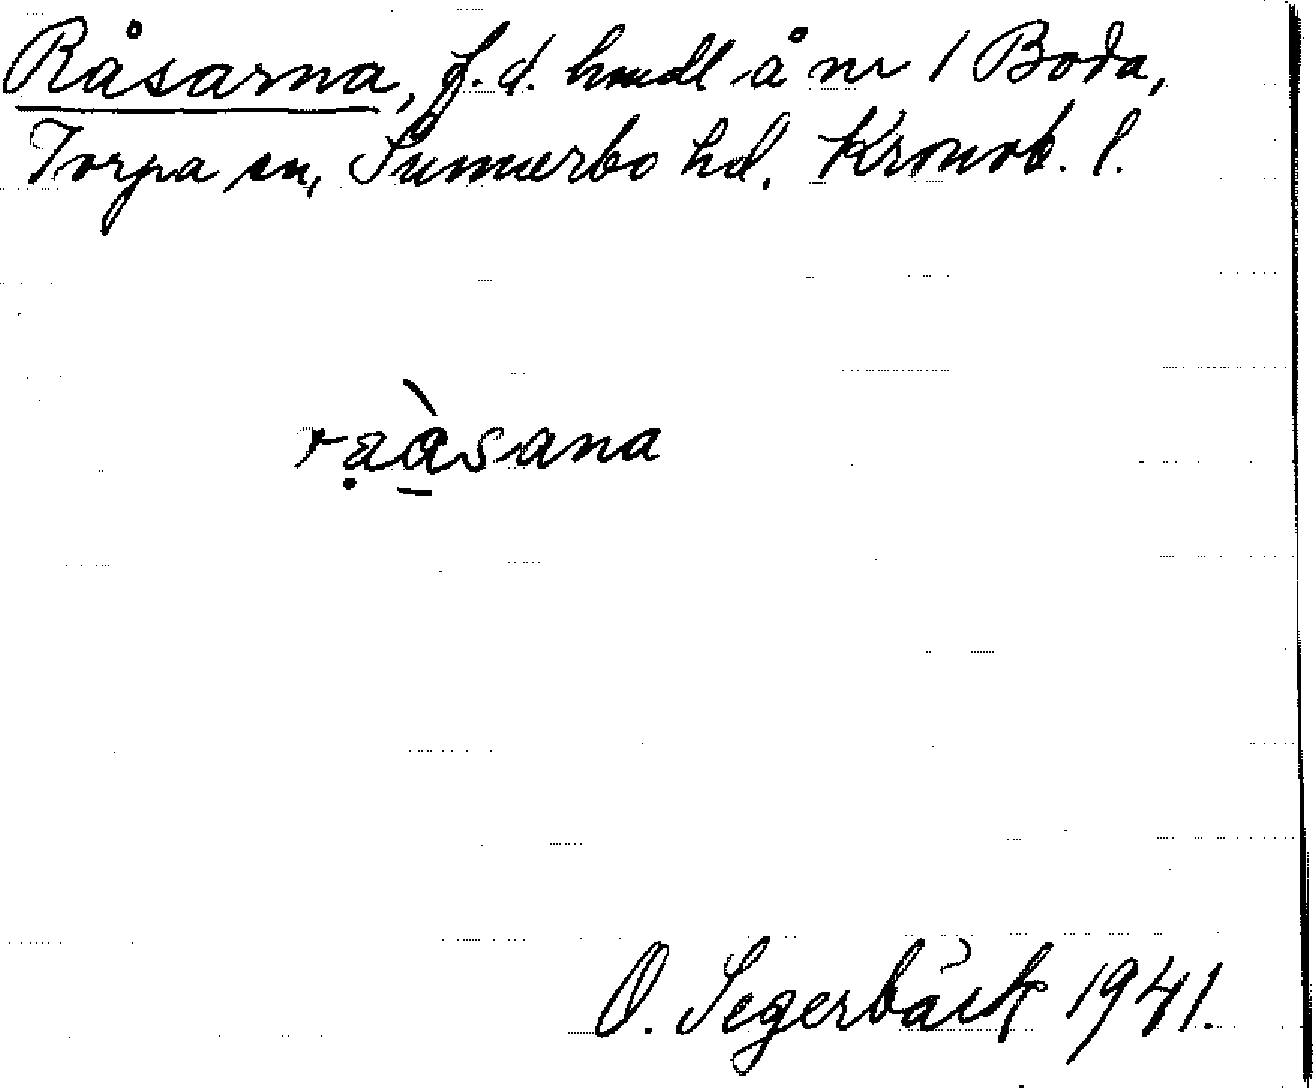 Råsarna, f.d. hmdl å nr 1 Boda,
Torpa sn, Sunnerbo hd. Kronob. l.
rạà̱sana
O. Segerbäck 1941.